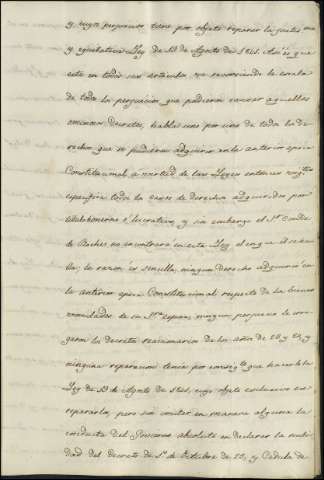 y cuyo perjuicio tiene por objeto reparar la justa
y equitativa Ley de 19 de Agosto de 1841. Asi es que
esta en todos sus articulos va recorriendo la escala
de todos los perjuicios que pudieron causar aquellos
omnimos Decretos, habla uno por uno de todos los de-
rechos que se pudieron adquirir en la anterior epoca
Constitucional a virtud de las Leyes entonces vigtes
especifica todas las clases de derechos adquiridos por
titulo oneroso é lucrativo, y sin embargo el Sr. Conde
de no encontrará en esta Ley el en que él se ha-
lla; la razon és sencilla, ningun derecho adquirió en
la anterior epoca Constitucional respecto de los bienes
vinculados de su Sra. esposa; ningun perjuicio le cau-
garon los decretos reaccionarios de los años de 23 y 24, y
ninguna reparacion tenia por consigte. que hacerle la
Ley de 19 de Agosto de 1841, cuyo objeto esclusivo era
repararlos, pero sin imitar en manera alguna la
conducta del Gobierno absoluto en declarar la nuli-
dad del decreto de 1º de Octubre de 23, y Cedula de